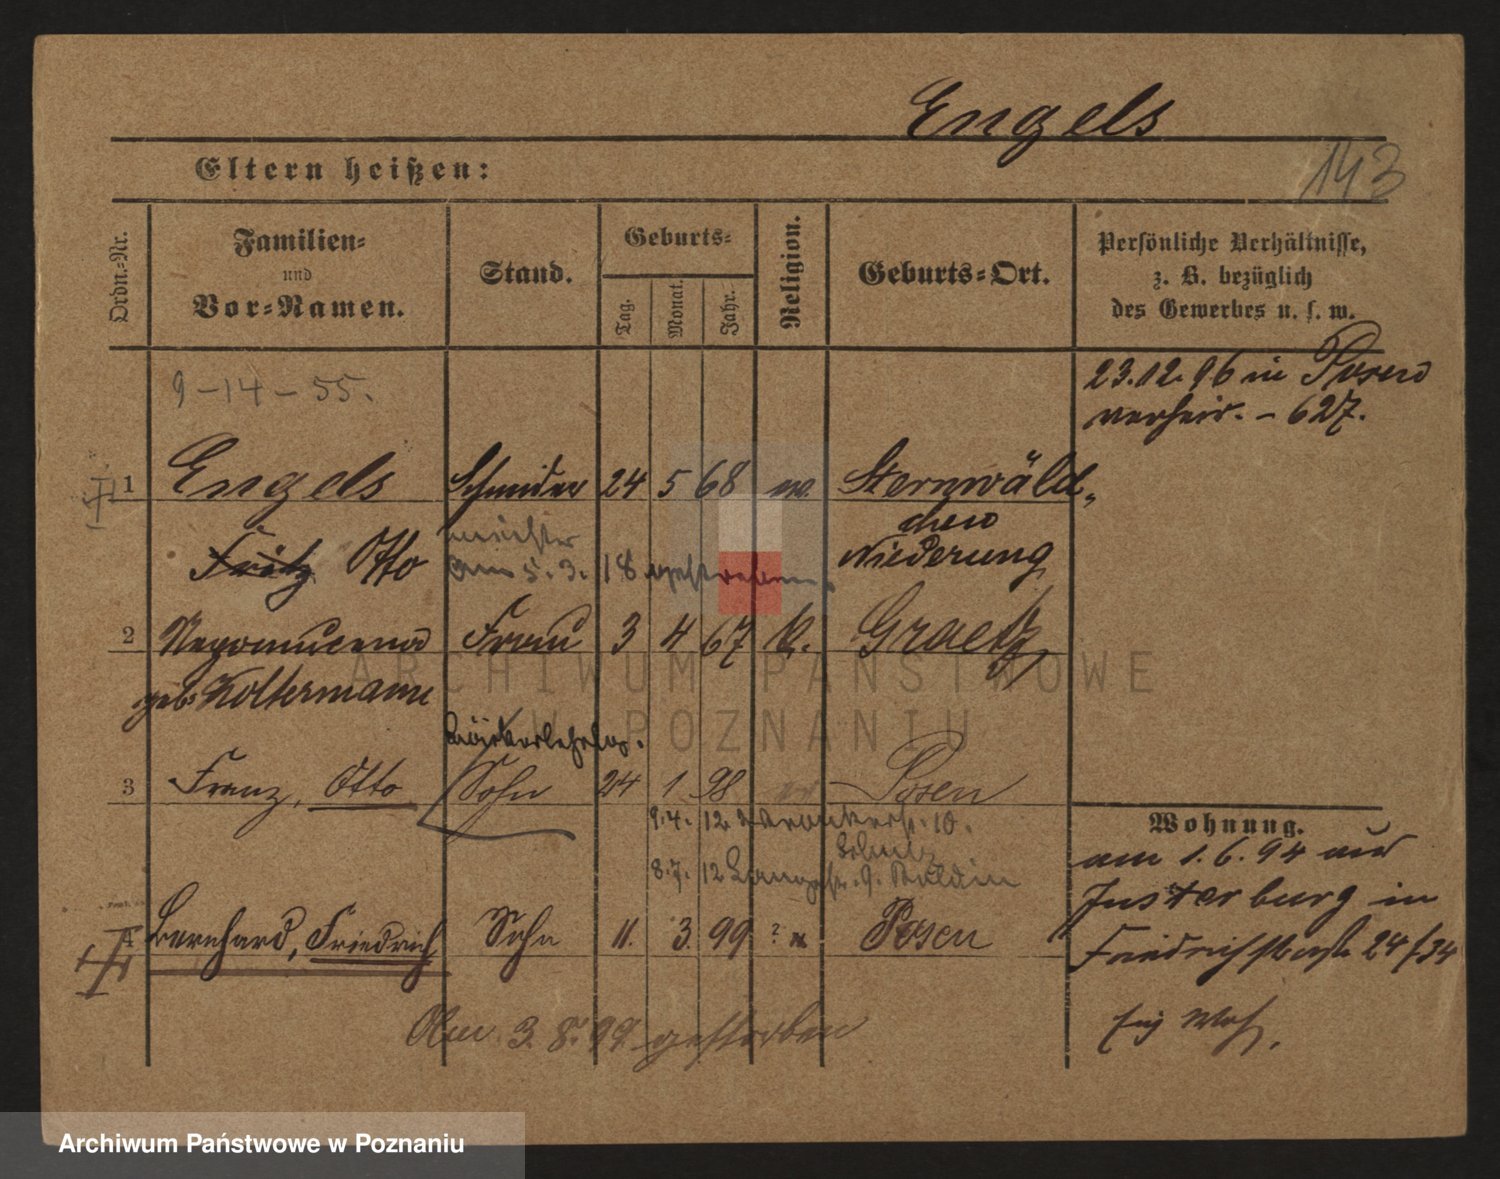 Engels
143
Eltern heißen:
Ordn.-Nr.
Familien-
und
Vor-Namen.
Stand.
Geburts-
Tag.
Monat.
Jahr.
Religion.
Geburts-Ort.
Persönliche Verhältnisse,
z. B. bezüglich
des Gewerbes u. s. w.
9-14-55.
23.12.96 in Posen
verheir. - 627.
1 Engels Schneider 24 5 68 ev. Sternwäld-
meister chen
Fritz Otto am 5.3.18 gestorben Niederung
2 Nepomucena Frau 3 4 67 k. Graetz
geb. Koltermann
3 Franz, Otto Sohn 24 1 98 ev Posen
9.4.12 10.
Wohnung.
8.7.12 Langestr. 9.
am 1.6.94 aus
Insterburg in
4 Bernhard, Friedrich Sohn 11. 3. 99 ? Posen
Friedrichstraße 24/34
Am 3.8.99 gestorben
ARCHIWUM PAŃSTWOWE
W POZNANIU
Archiwum Państwowe w Poznaniu